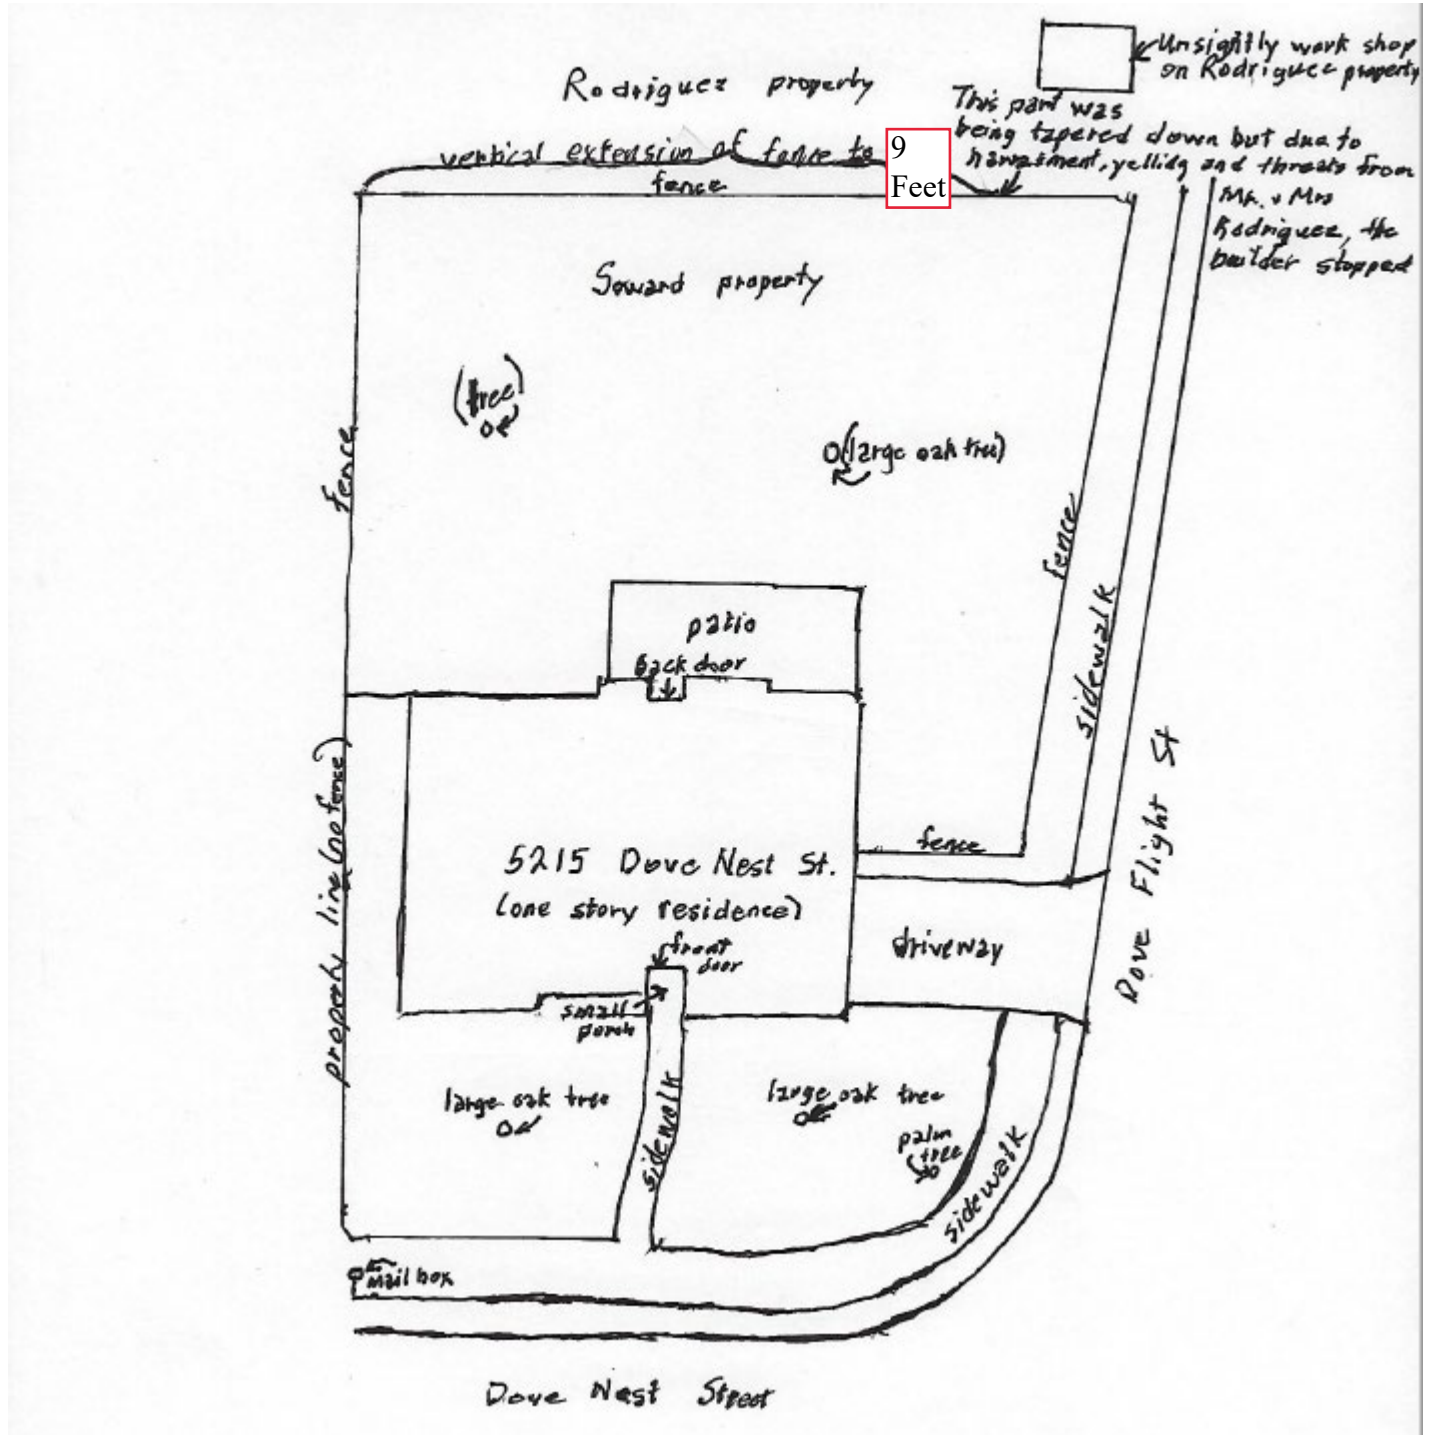 Unsightly work shop
on Rodriguez property
Rodriguez property
This part was
being tapered down but due to
harassment, yelling and threats from
Mr. + Mrs
Rodriguez, the
builder stopped
vertical extension of fence to 9
Feet
fence
Soward property
(tree)
(large oak tree)
fence
fence
sidewalk
patio
back door
Dove Flight St
property line (no fence)
fence
5215 Dove Nest St.
(one story residence)
front
door
driveway
small
porch
large oak tree
large oak tree
sidewalk
palm
tree
sidewalk
mail box
Dove Nest Street